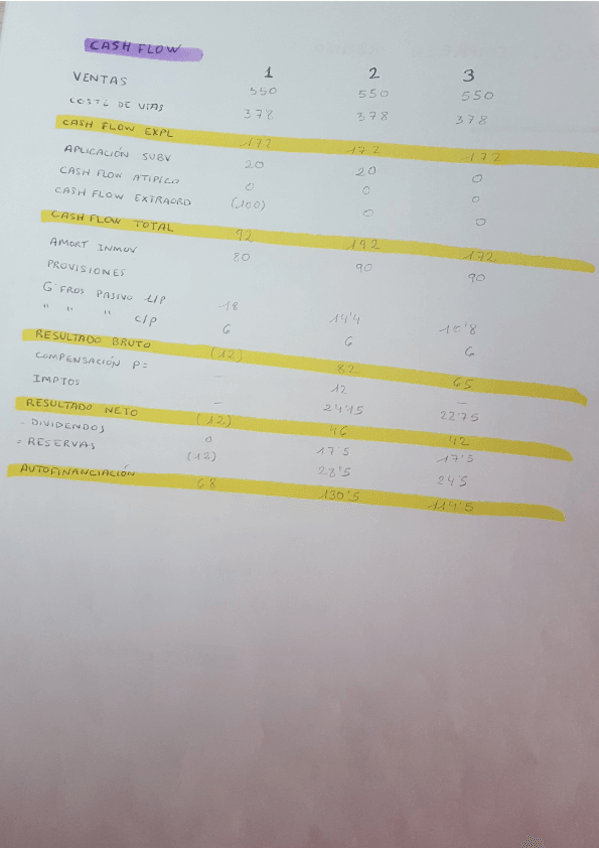 CASH FLOW
1 2 3
VENTAS 550 550 550
COSTE DE VTAS 378 378 378
CASH FLOW EXPL 172 172 172
APLICACIÓN SUBV 20 20 0
CASH FLOW ATIPICO 0 0 0
CASH FLOW EXTRAORD (100) 0 0
CASH FLOW TOTAL 92 192 172
AMORT INMOV 80 90 90
PROVISIONES
G. FROS PASIVO L/P 18 14'4 10'8
" " " C/P 6 6 6
RESULTADO BRUTO (12) 82 65
COMPENSACIÓN P= - 12 -
IMPTOS - 24'15 22'75
RESULTADO NETO (12) 46 42
- DIVIDENDOS 0 17'5 17'5
= RESERVAS (12) 28'5 24'5
AUTOFINANCIACIÓN 68 130'5 114'5